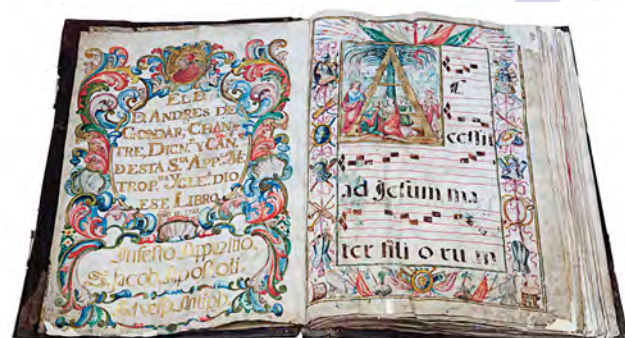 EL D
D. ANDRES DE
GONDAR, CHAN
TRE, DIGN. Y CAN.
DESTA S.ta APP.ca ME
TROP.na YGLE.a DIO
ESE LIBRO.
In festo
S. Jacob. Apostoli.
Ad vesp. Antiph.
A
ccessit
ad Jesum ma
ter fili o ru m